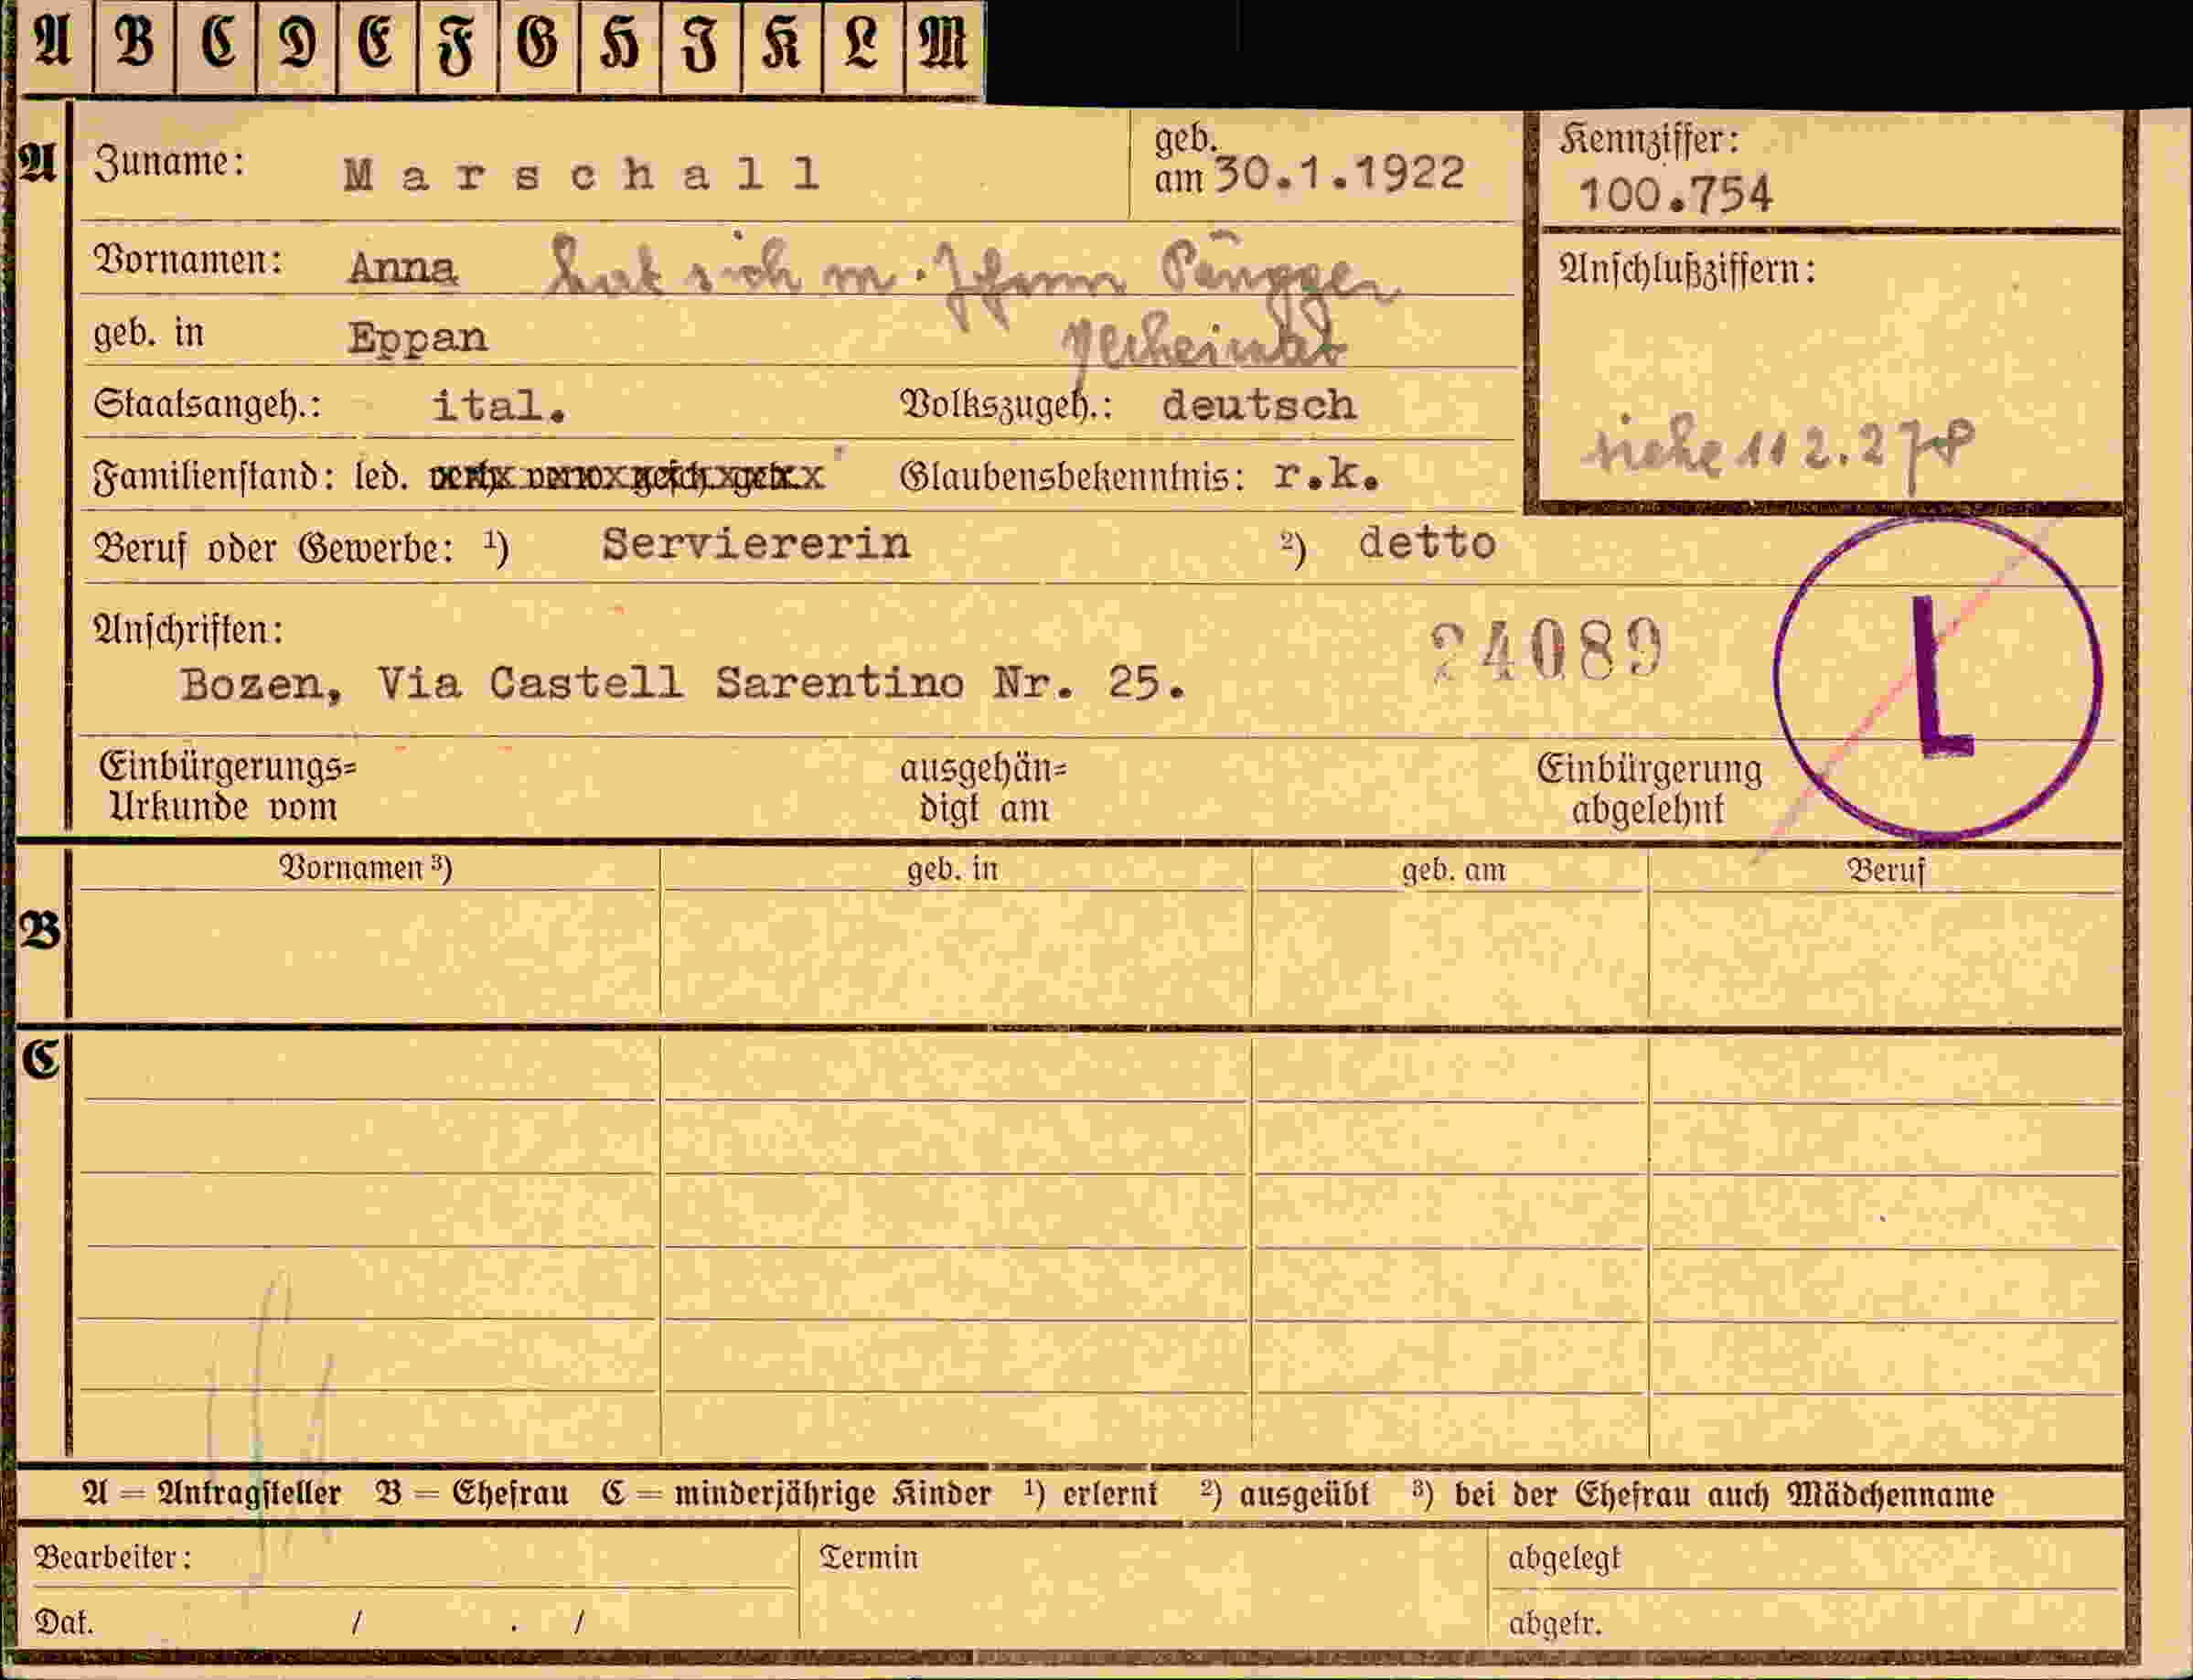 A B C D E F G H I K L M
A Zuname: Marschall geb. am 30.1.1922 Kennziffer: 100.754
Vornamen: Anna hat sich m. Johann
geb. in Eppan verheiratet
Anschlußziffern: siehe 112.278
Staatsangeh.: ital. Volkszugeh.: deutsch
Familienstand: led. verh. verw. gesch. getr. Glaubensbekenntnis: r.k.
Beruf oder Gewerbe: 1) Serviererin 2) detto
Anschriften: 24089 L
Bozen, Via Castell Sarentino Nr. 25.
Einbürgerungs= ausgehän= Einbürgerung
Urkunde vom digt am abgelehnt
Vornamen 3) geb. in geb. am Beruf
B
C
A = Antragsteller B = Ehefrau C = minderjährige Kinder 1) erlernt 2) ausgeübt 3) bei der Ehefrau auch Mädchenname
Bearbeiter: Termin abgelegt
Dat. / . / abgetr.